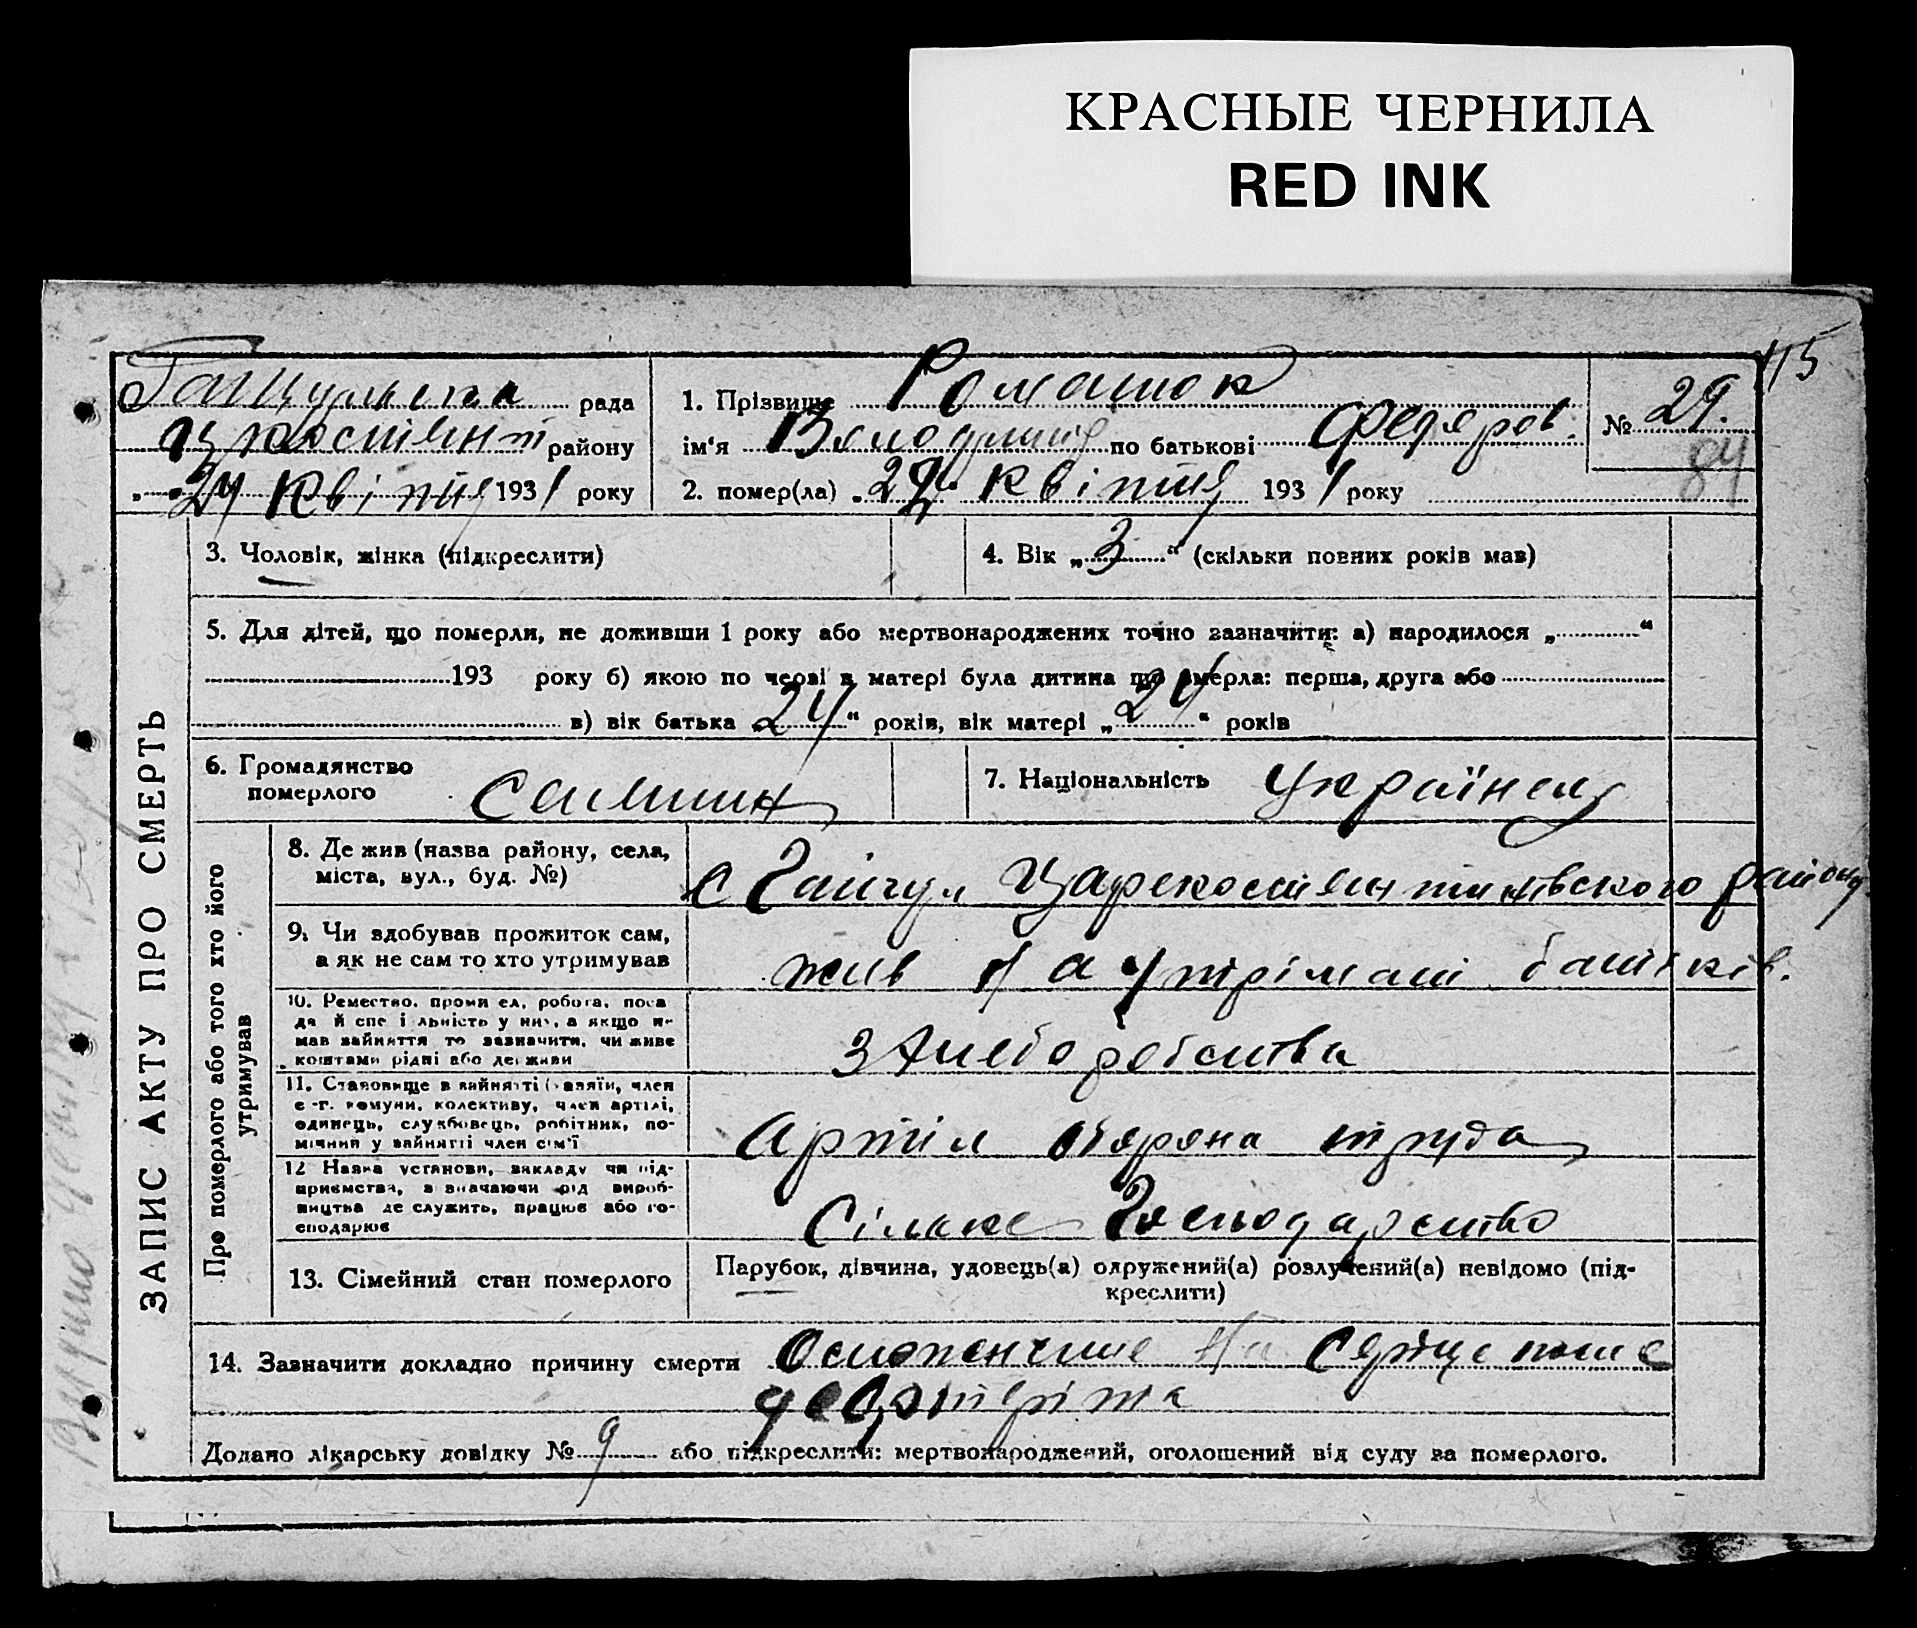 КРАСНЫЕ ЧЕРНИЛА
RED INK
115
рада
району
24 квітня 1931 року
1. Прізвище Ромашок
ім'я Володимир по батькові Федяров.
2. помер(ла) 22 квітня 1931 року
№ 29.
84
ЗАПИС АКТУ ПРО СМЕРТЬ
3. Чоловік, жінка (підкреслити)
4. Вік „3“ (скільки повних років мав)
5. Для дітей, що померли, не доживши 1 року або мертвонароджених точно зазначити: а) народилося „ “
193 року б) якою по черзі в матері була дитина що вмерла: перша, друга або
в) вік батька „24“ років, вік матері „24“ років
6. Громадянство
померлого
7. Національність Українец
Про померлого або того хто його
утримував
8. Де жив (назва району, села,
міста, вул., буд. №)
с Гайчул Царекостянтинівского району
9. Чи здобував прожиток сам,
а як не сам то хто утримував
жив На утрімані батьків.
10. Ремество, промисел, робота, поса
да й спеціяльність у них, а якщо не
мав зайняття то зазначити, чи живе
коштами рідні або держави
З Хлеборобства
11. Становище в зайнятті (хазяїн, член
с.-г. комуни, колективу, член артілі,
одинець, службовець, робітник, по-
мічний у зайнятті член сім'ї
Артіл Охорона труда
12 Назва установи, закладу чи під-
приємства, зазначаючи рід вироб-
ництва де служить, працює або го-
сподарює
Сільське Господарство
13. Сімейний стан померлого
Парубок, дівчина, удовець(а) одружений(а) розлучений(а) невідомо (під-
креслити)
14. Зазначити докладно причину смерти Осложнение На Сердце после
Додано лікарську довідку № 9 або підкреслити: мертвонароджений, оголошений від суду за померлого.